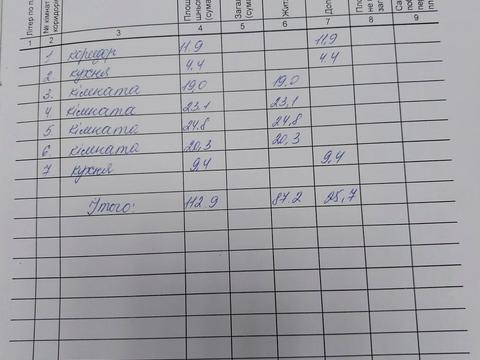 Літер по п
№ кімнат
коридор
Площ
шньо
(сума
Зага
(сума
Жит
Доп
Пло
не в
заг
Са
поб
пер
1 2 3 4 5 6 7 8 9
1 коридор 11.9 11,9
2 кухня 4.4 4.4
3. кімната 19,0 19,0
4 кімната 23.1 23,1
5 кімната 24.8 24,8
6. кімната 20,3 20,3
7 кухня 9,4 9,4
Ітого: 112.9 87.2 25,7